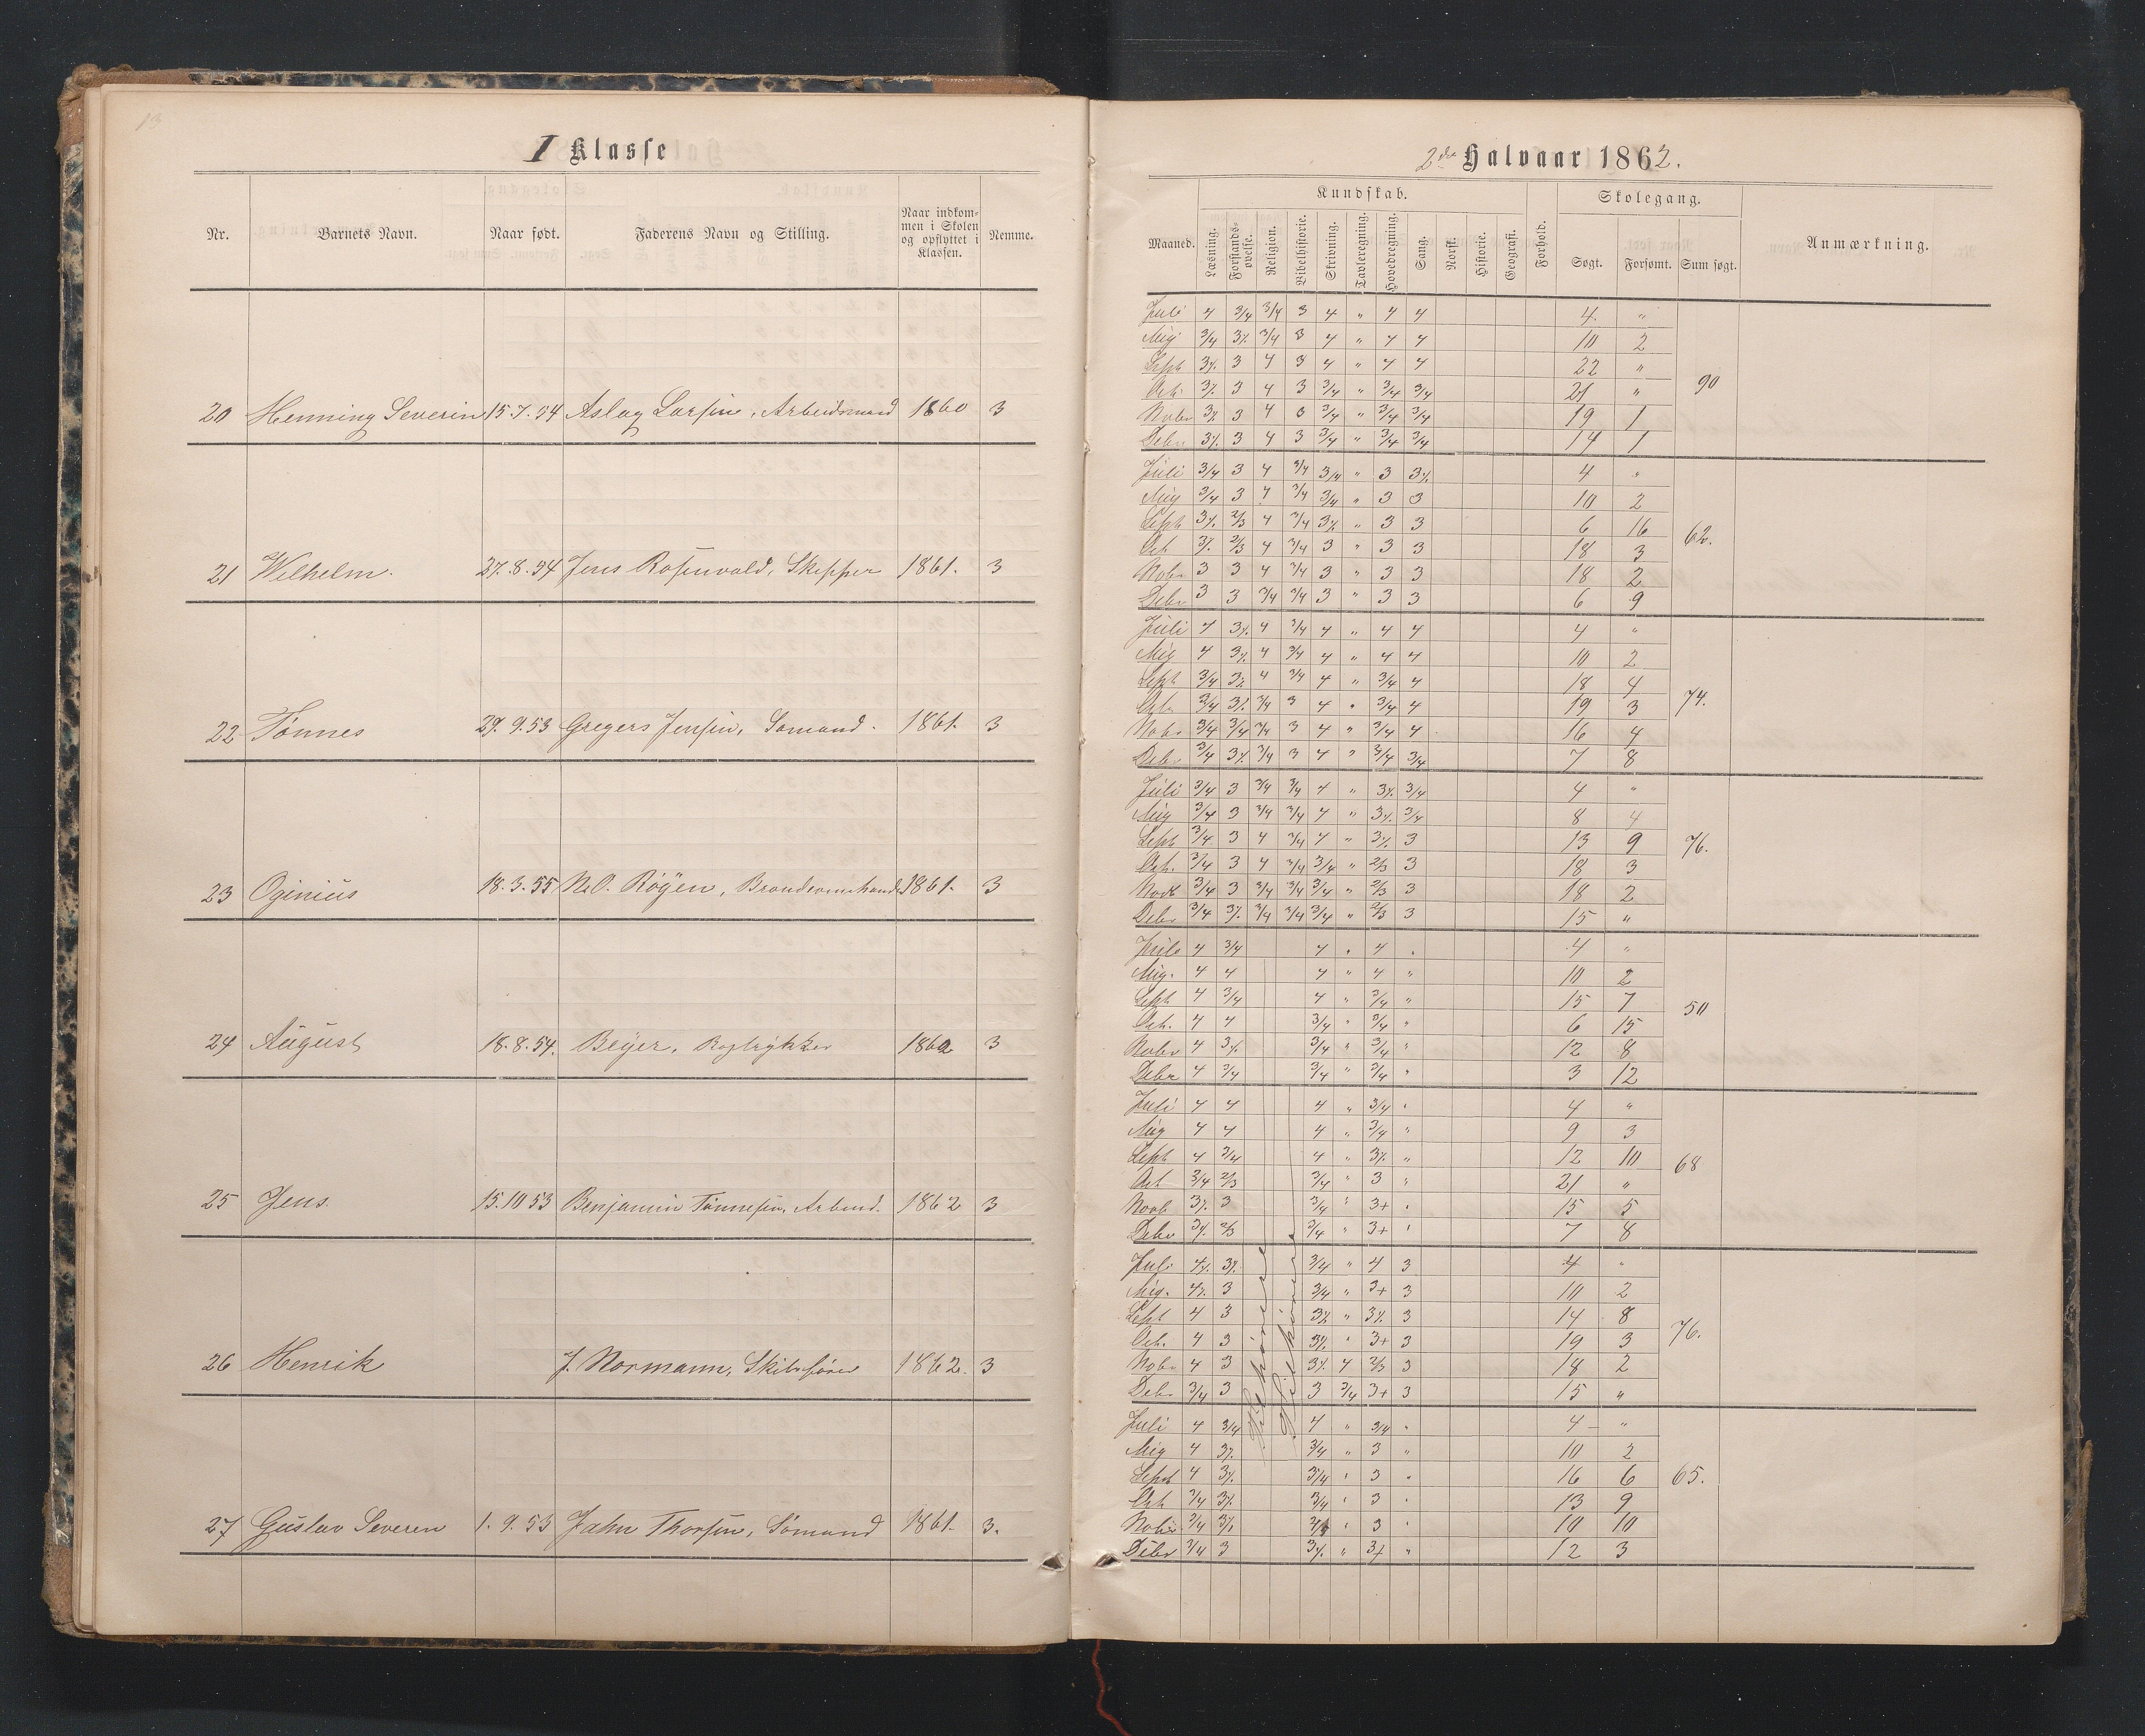 13
I Klasse
Nr. Barnets Navn. Naar født. Faderens Navn og Stilling. Naar indkom-
men i Skolen
og opflyttet i
Klassen. Nemme.
20 Henning Severin 15.7.54 Aslag Larsen, Arbeidsmand 1860 3
21 Wilhelm. 27.8.54 Jens Rosenvold, Skipper 1861. 3
22 Tønnes 29.9.53 Gregers Jensen, Sømand. 1861. 3
23 Oginius 18.3.55 N.O. Röyen, 1861. 3
24 August 18.8.54. Beyer, Bogtrykker 1862 3
25 Jens. 15.10.53 Benjamin Tønnesen, Arbmd. 1862 3
26 Henrik J. Normann, Skibsfører 1862. 3
27 Gustav Severen 1.9.53 Jahn Thorsen, Sømand 1861. 3.
2det Halvaar 1862.
Maaned. Kundskab. Forhold. Skolegang. Anmærkning.
Læsning. Forstands-
øvelse. Religion. Bibelhistorie. Skrivning. Tavleregning. Hovedregning. Sang. Norsk. Historie. Geografi. Søgt. Forsømt. Sum søgt.
Juli 4 3/4 3/4 3 4 " 4 4 4. "
Aug 3/4 3/. 3/4 3 4 " 4 4 10 2
Sept 3/. 3 4 3 4 " 4 4 22 "
Oct. 3/. 3 4 3 3/4 " 3/4 3/4 21 " 90
Nobr 3/. 3 4 3 3/4 " 3/4 3/4 19 1
Debr 3/. 3 4 3 3/4 " 3/4 3/4 14 1
Juli 3/4 3 4 3/4 3/4 " 3 3/. 4 "
Aug 3/4 3 4 3/4 3/4 " 3 3 10 2
Sept 3/. 2/3 4 3/4 3/. " 3 3 6 16
Oct 3/. 2/3 4 3/4 3 " 3 3 18 3 62.
Nobr 3 3 4 3/4 3 " 3 3 18 2
Debr 3 3 3/4 3/4 3 " 3 3 6 9
Juli 4 3/. 4 3/4 4 " 4 4 4 "
Aug 4 3/. 4 3/4 4 " 4 4 10 2
Sept 3/4 3/. 4 3/4 4 " 3/4 4 18 4
Oct. 3/4 3/. 3/4 3 4 " 3/4 4 19 3 74.
Nobr 3/4 3/4 3/4 3 4 " 3/4 4 16 4
Debr 3/4 3/. 3/4 3 4 " 3/4 3/4 7 8
Juli 3/4 3 3/4 3/4 4 " 3/. 3/4 4 "
Aug 3/4 3 3/4 3/4 4 " 3/. 3/4 8 4
Sept 3/4 3 4 3/4 4 " 3/. 3 13 9
Oct. 3/4 3 4 3/4 3/4 " 2/3 3 18 3 76.
Nobr 3/4 3 3/4 3/4 3/4 " 2/3 3 18 2
Debr 3/4 3/. 3/4 3/4 3/4 " 2/3 3 15 "
Juli 4 3/4 4 " 4 " 4 "
Aug. 4 4 4 " 4 " 10 2
Sept 4 3/4 4 " 3/4 " 15 7
Oct. 4 4 3/4 " 3/4 " 6 15 50
Nobr 4 3/. 3/4 " 3/4 " 12 8
Debr 4 3/4 3/4 " 3/4 " 3 12
Juli 4 4 4 " 3/4 " 4 "
Aug 4 4 4 " 3/4 " 9 3
Sept 4 3/4 4 " 3/. " 12 10
Oct 3/4 2/3 3/4 " 3 " 21 " 68
Novb 3/. 3 3/4 " 3+ " 15 5
Debr 3/. 2/3 3/4 " 3+ " 7 8
Juli 4/. 3/. 3/4 " 4 3 4 "
Aug. 4/. 3 3/4 " 3+ 3 10 2
Sept 4 3 3/. " 3/. 3 14 8
Oct. 4 3 3/. " 3+ 3 19 3 76.
Nobr 4 3 3/. 4 2/3 3 18 2
Debr 3/4 3 3 3/4 3+ 3 15 "
Juli 4 3/4 4 " 3/4 " 4 "
Aug 4 3/. 3/4 " 3 " 10 2
Sept 4 3/. 3/4 " 3 " 16 6
Oct 3/4 3/. 3/4 " 3 " 13 9 65.
Nobr 3/4 3/. " 3 " 10 10
Debr 3/4 3 3/. " 3+ " 12 3